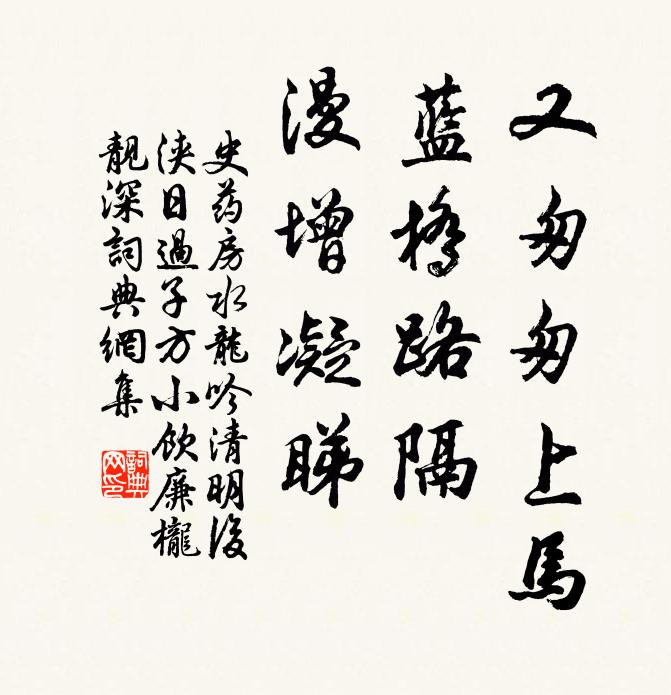 又匆匆上馬
藍橋路隔
漫增凝睇
史药房水龍吟清明後
浹日過子方小飲廉櫳
靚深詞典網集
詞典
网印